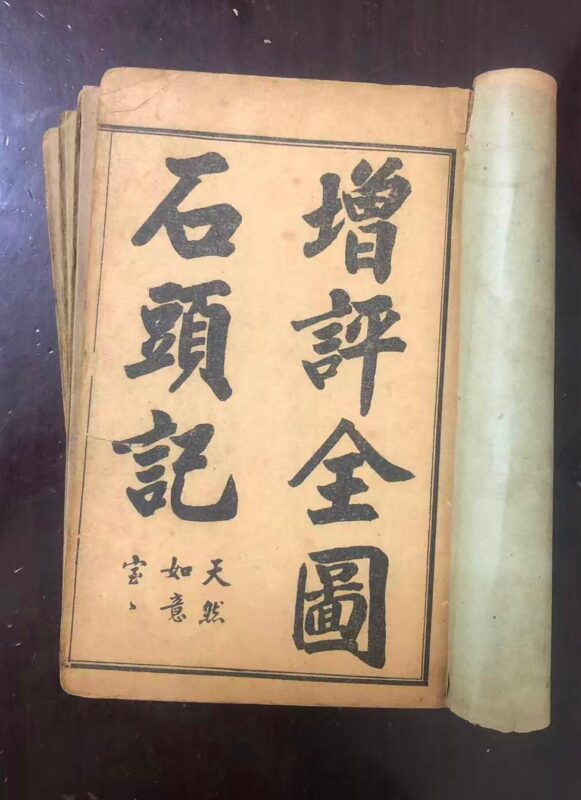 增評全圖
石頭記
天然
如意